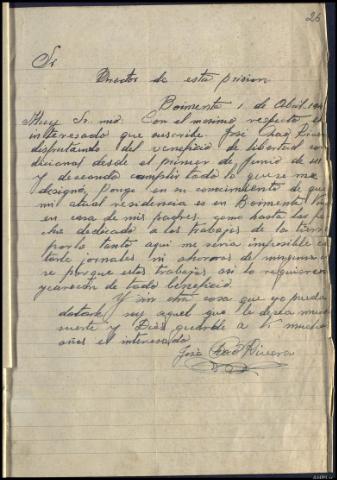 26
Sr
Director de esta prision
Boimente 1 de Abril
Muy Sr. mio. Con el maximo respecto el
interesado que suscribe. José Chao Rivera
disfrutando del veneficio de libertad con
dicional desde el primer de Junio de
y deseando cumplir todo lo que se me
designa, pongo en su conocimiento de que
mi atual residencia es en Boimente
en casa de mis padres, y como hasta la fe
cha dedicado a los trabajos de la tierra
por lo tanto aqui me seria imposible
jornales ni ahorros de ninguna
se porque estos trabajos asi lo requieren
y carecen de todo beneficio.
Y sin otra cosa que yo pueda
datarle, suyo aquel que le desea
suerte y Dios guarde a V. muchos
años el interesado
José Chao Rivera